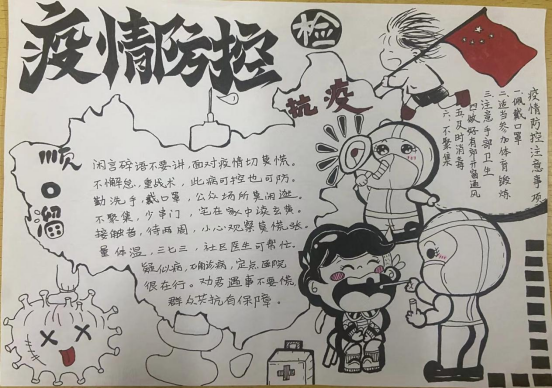 疫情防控
检
抗疫
顺口溜
闲言碎语不要讲,面对疫情切莫慌,
不懈怠,重战术,此病可控也可防。
勤洗手,戴口罩,公众场所莫闲逛。
不聚集,少串门,宅在家中读
接触者,待两周,小心观察莫慌张。
量体温,三七三,社区医生可帮忙。
疑似病,确诊病,定点医院
很在行。劝君遇事不要慌
群众英抗有保障。
疫情防控注意事项
一、佩戴口罩
二、适当参加体育锻炼
三、注意手部卫生
四、做好居室开窗通风
五、及时消毒
六、不聚集